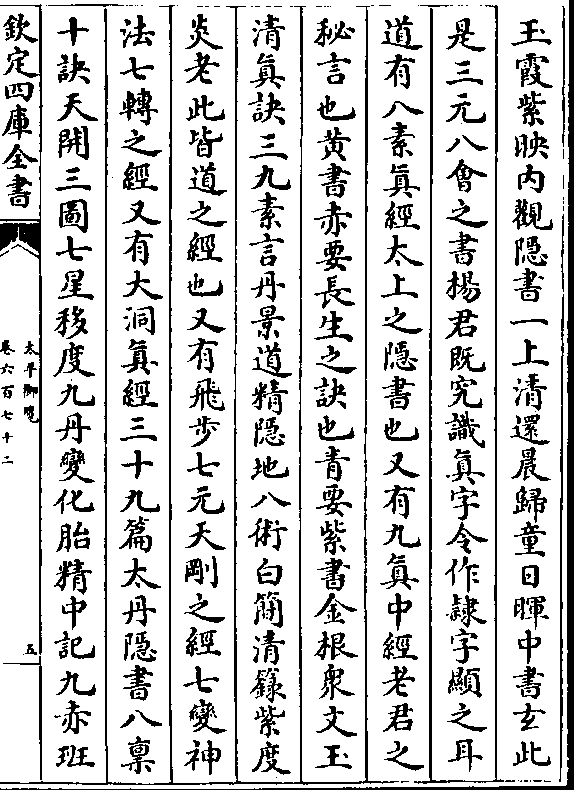 玉霞紫映内觀隠書一上清還晨歸童日暉中書玄此
是三元八會之書楊君既究識眞字令作隷字顯之耳
道有八素眞經太上之隠書也又有九眞中經老君之
秘言也黄書赤要長生之訣也青要紫書金根衆文玉
清眞訣三九素言丹景道精隠地八術白簡清籙紫度
炎老此皆道之經也又有飛步七元天剛之經七變神
法七轉之經又有大洞眞經三十九篇太丹隠書八稟
十訣天開三圖七星移度九丹變化胎精中記九赤班
欽定四庫全書
太平御覽
卷六百七十二
五